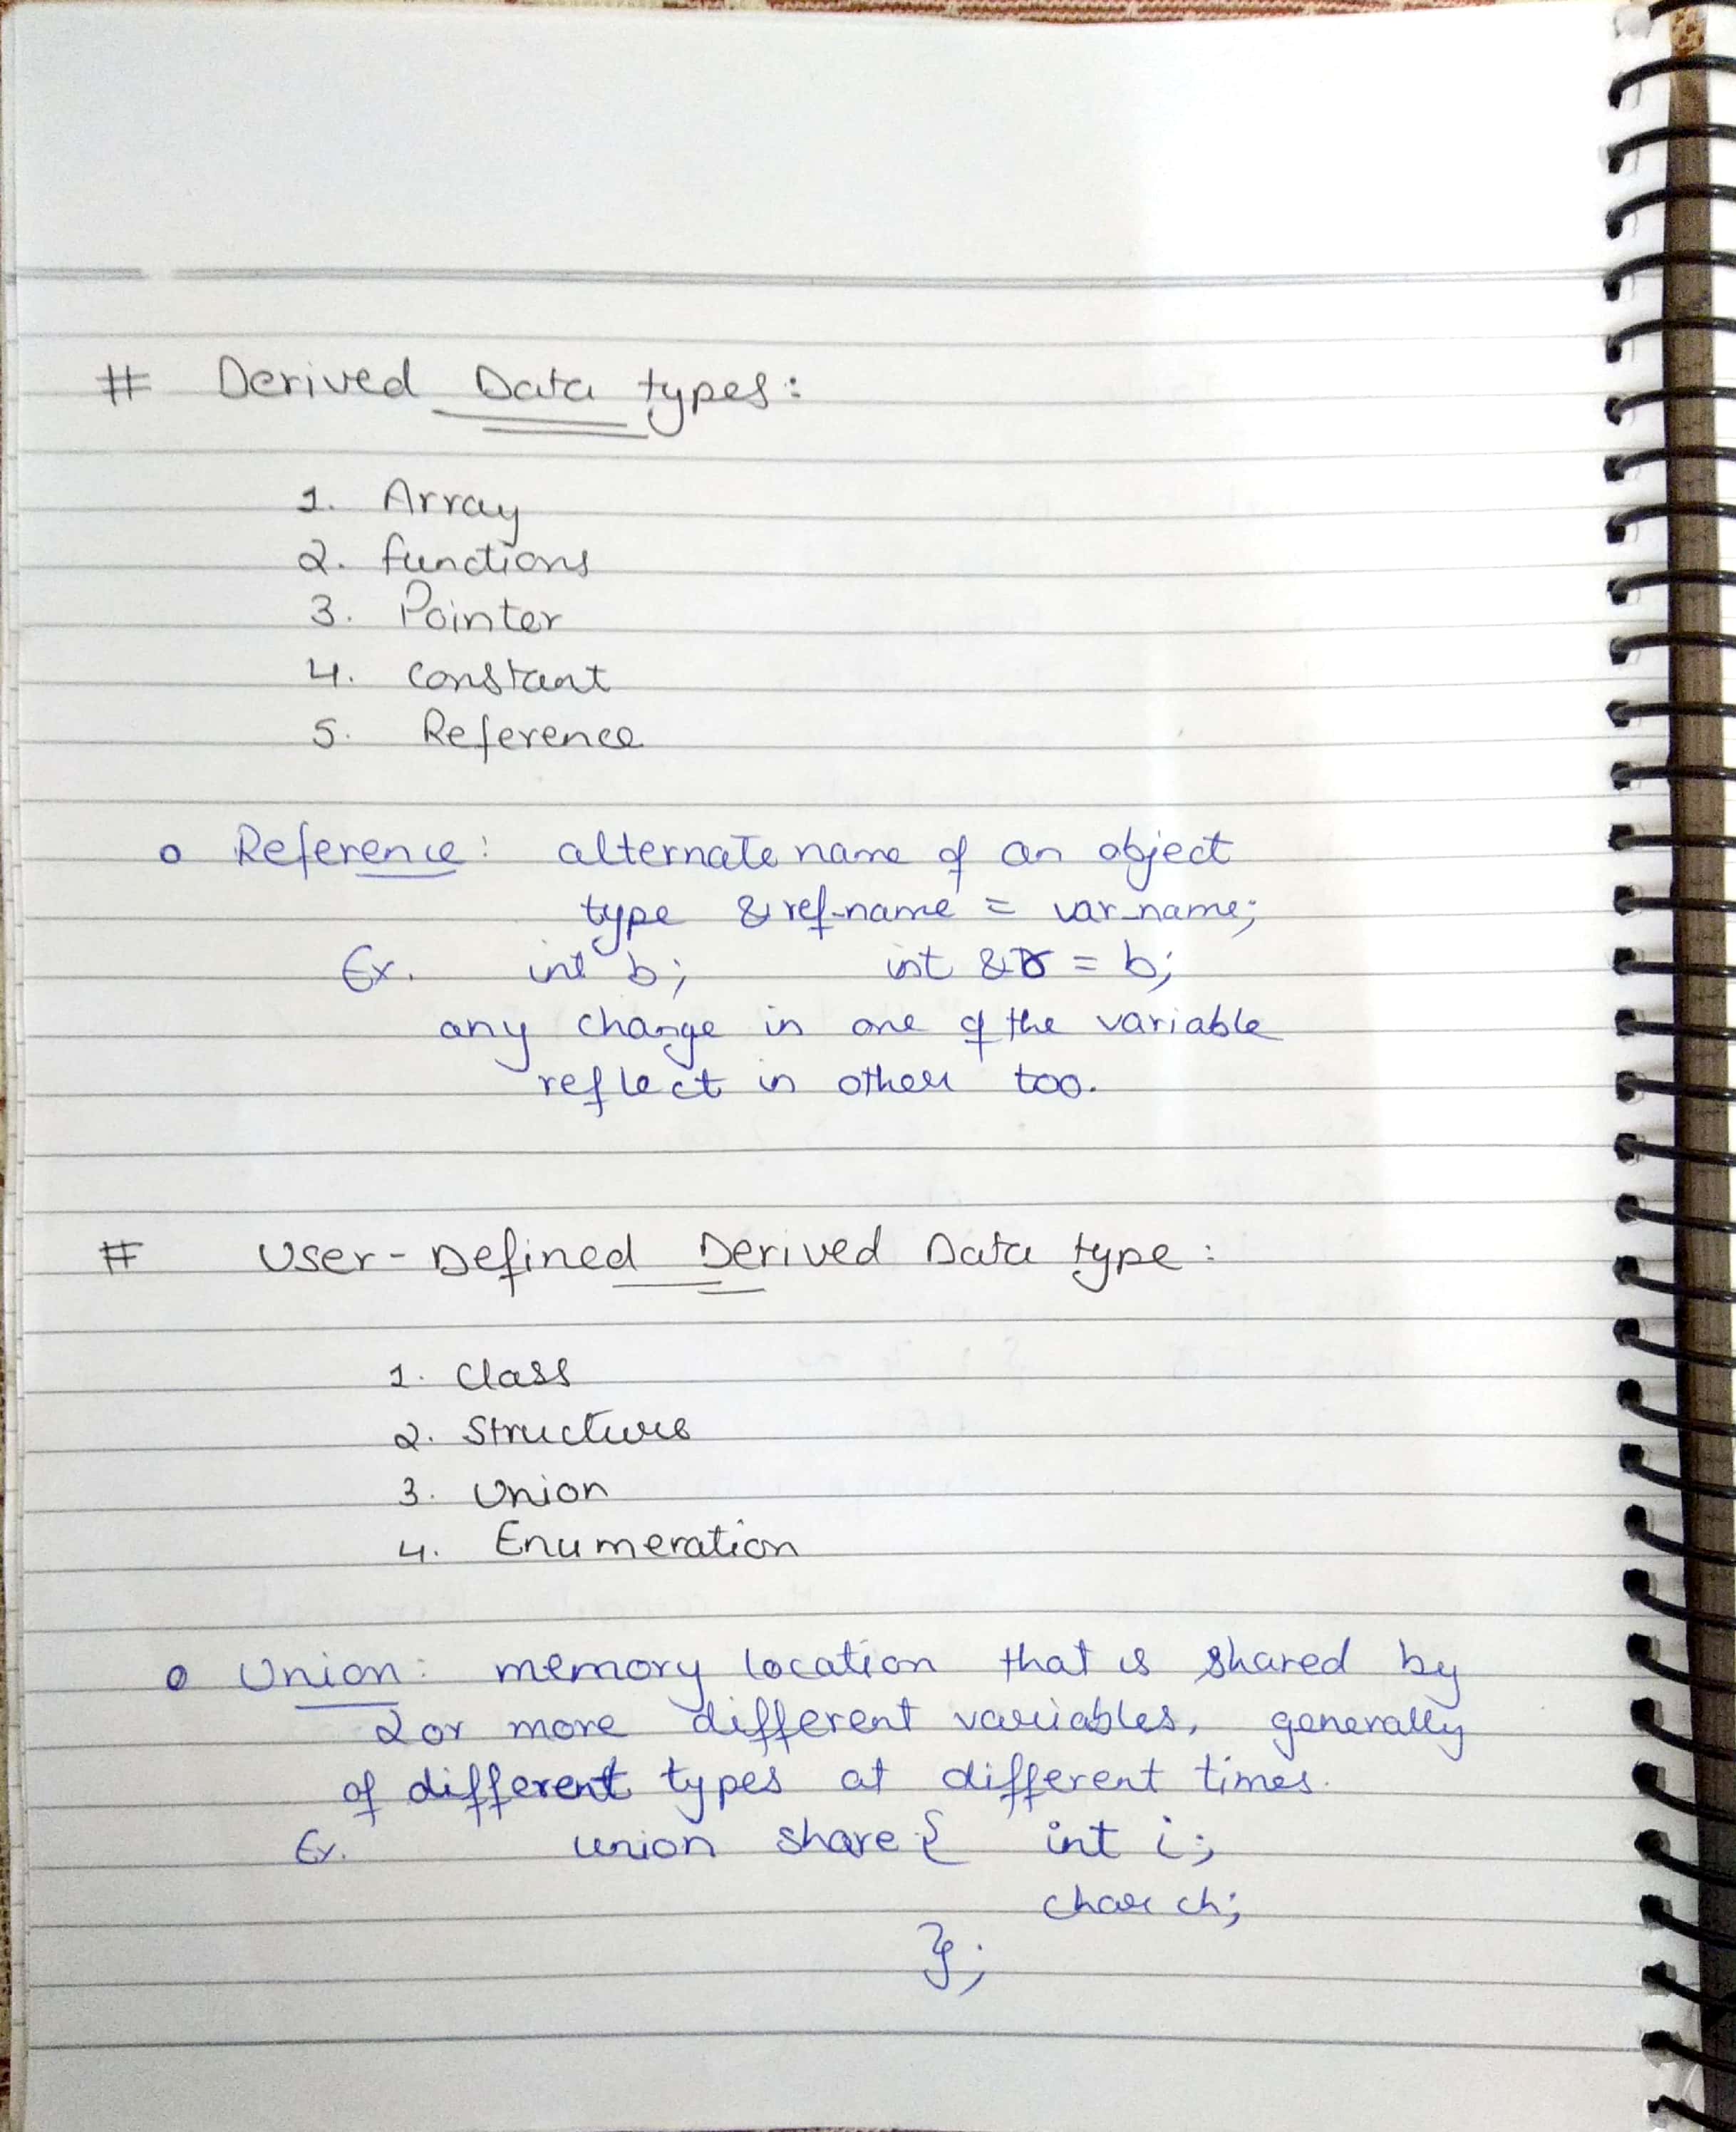 # Derived Data types:
1. Array
2. functions
3. Pointer
4. constant
5. Reference
o Reference: alternate name of an object
type &ref-name = var_name;
Ex. int b; int &r = b;
any change in one of the variable
reflect in other too.
# User-Defined Derived Data type:
1. Class
2. Structure
3. Union
4. Enumeration
o Union: memory location that is shared by
2 or more different variables, generally
of different types at different times.
Ex. union share { int i;
char ch;
};